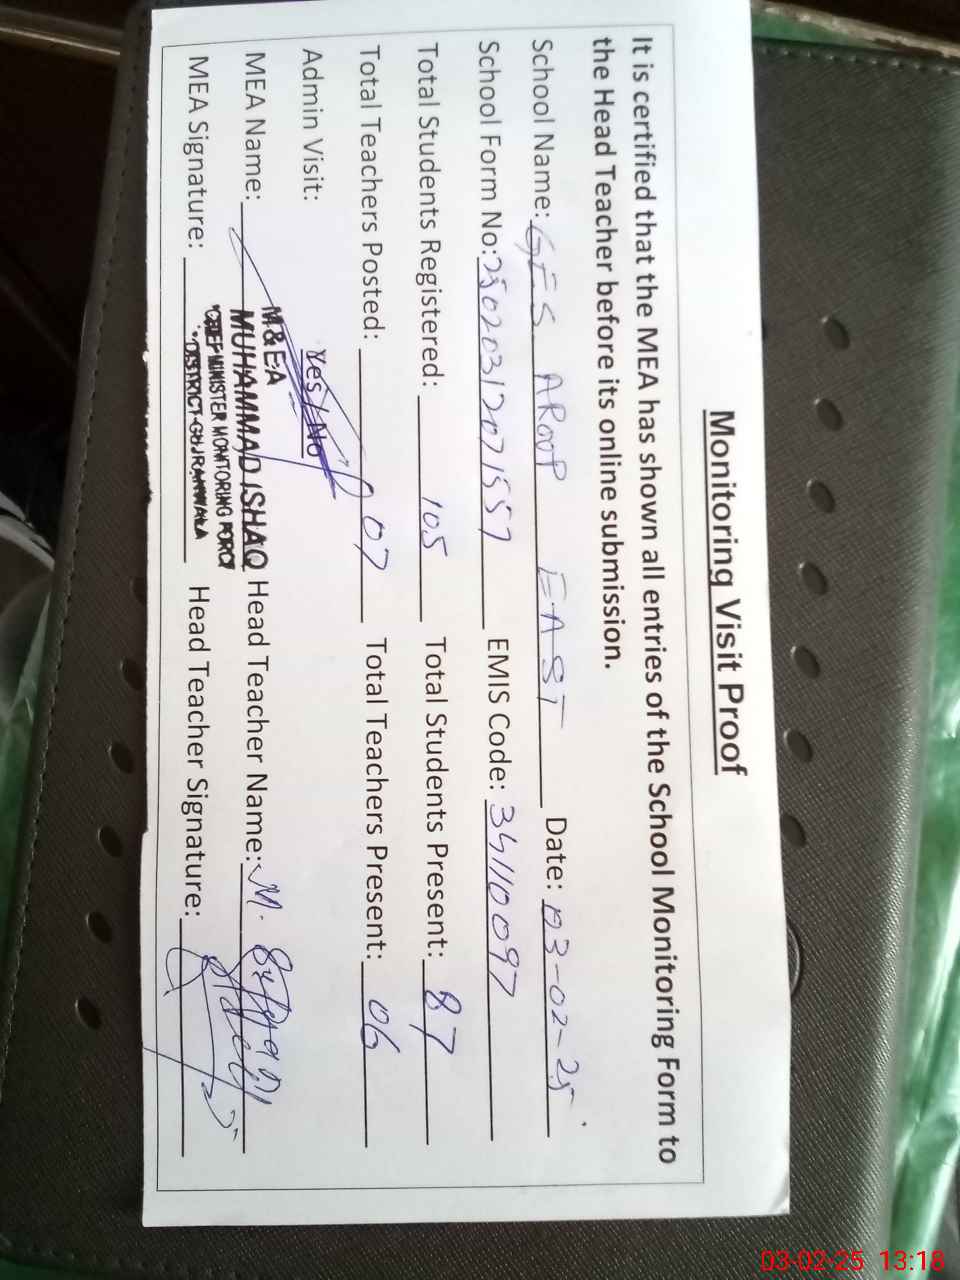 Monitoring Visit Proof
It is certified that the MEA has shown all entries of the School Monitoring Form to
the Head Teacher before its online submission.
School Name: GES AROOP EAST Date: 03-02-25
School Form No: 25020312071557 EMIS Code: 34110097
Total Students Registered: 105 Total Students Present: 87
Total Teachers Posted: 07 Total Teachers Present: 06
Admin Visit: Yes / No
M & E.A
MEA Name: MUHAMMAD ISHAQ Head Teacher Name: M.
CHIEF MINISTER MONITORING FORCE
MEA Signature: DISTRICT-GUJRANWALA Head Teacher Signature:
03-02-25 13:18